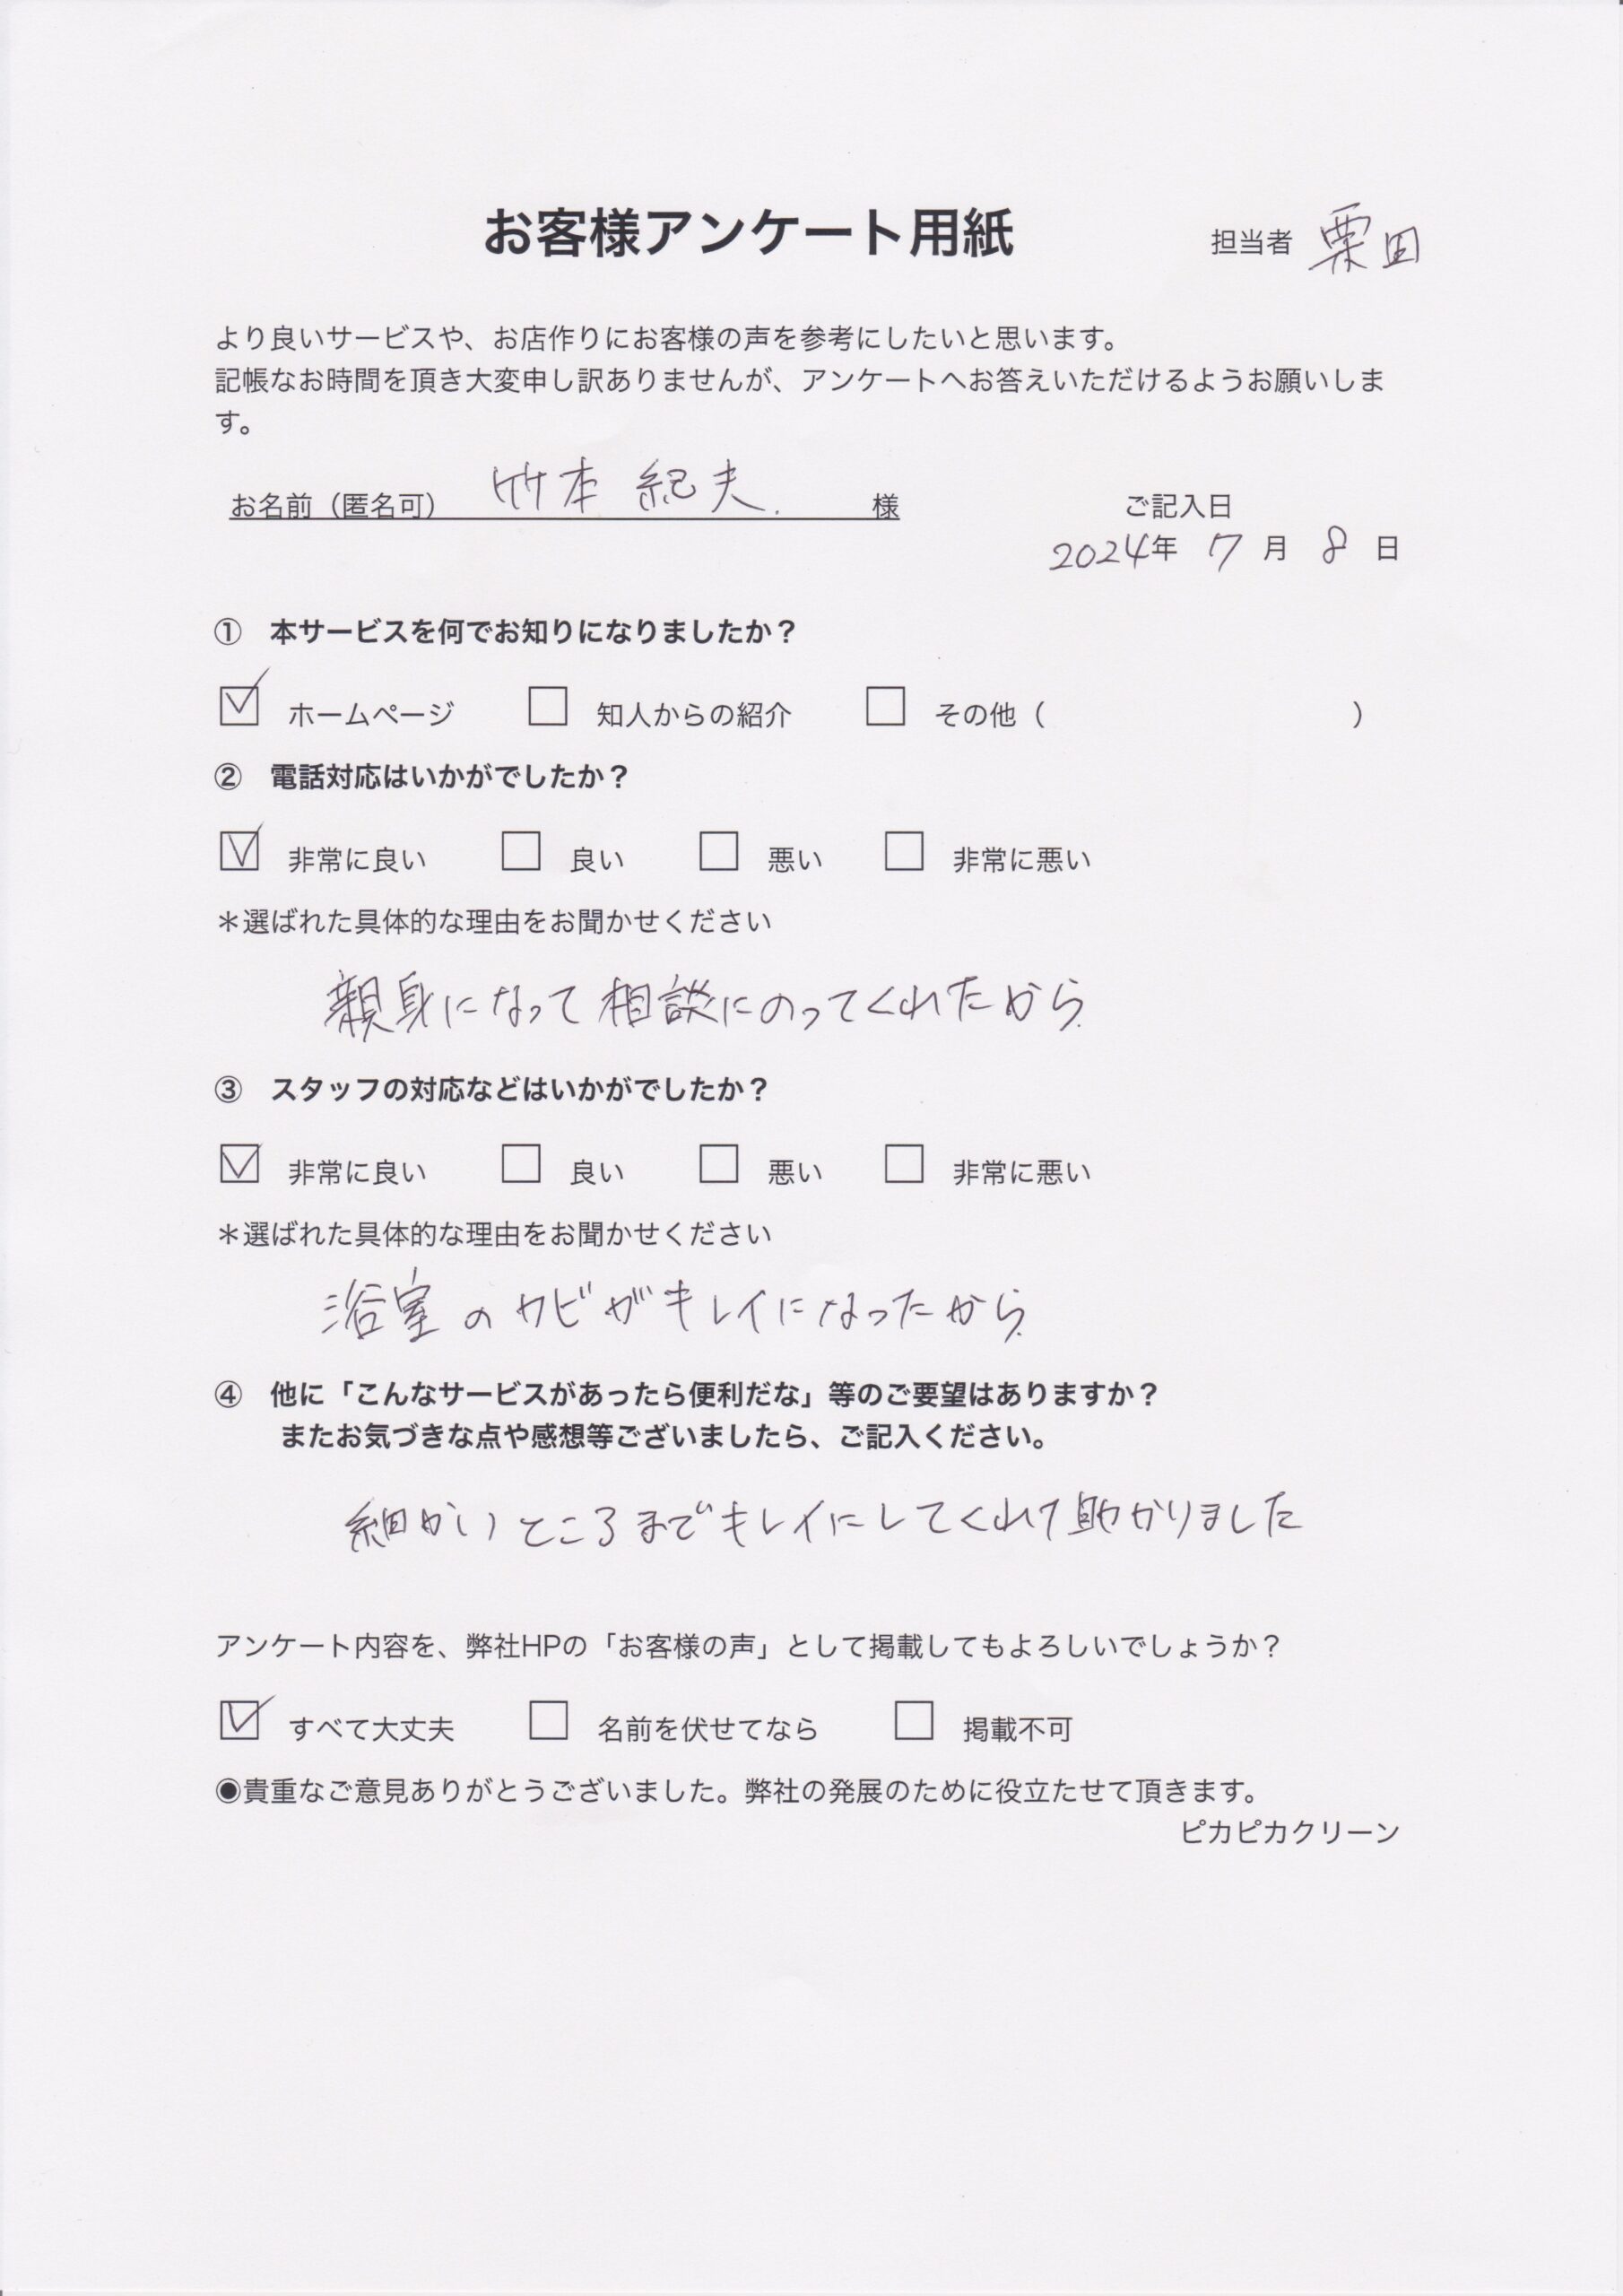 お客様アンケート用紙
担当者 栗田
より良いサービスや、お店作りにお客様の声を参考にしたいと思います。
記帳なお時間を頂き大変申し訳ありませんが、アンケートへお答えいただけるようお願いしま
す。
お名前（匿名可） 竹本 紀夫. 様
ご記入日
2024年 7 月 8 日
① 本サービスを何でお知りになりましたか？
☑ ホームページ ☐ 知人からの紹介 ☐ その他（ ）
② 電話対応はいかがでしたか？
☑ 非常に良い ☐ 良い ☐ 悪い ☐ 非常に悪い
＊選ばれた具体的な理由をお聞かせください
親身になって相談にのってくれたから.
③ スタッフの対応などはいかがでしたか？
☑ 非常に良い ☐ 良い ☐ 悪い ☐ 非常に悪い
＊選ばれた具体的な理由をお聞かせください
浴室のカビがキレイになったから.
④ 他に「こんなサービスがあったら便利だな」等のご要望はありますか？
またお気づきな点や感想等ございましたら、ご記入ください。
細かいところまでキレイにしてくれて助かりました
アンケート内容を、弊社HPの「お客様の声」として掲載してもよろしいでしょうか？
☑ すべて大丈夫 ☐ 名前を伏せてなら ☐ 掲載不可
◉貴重なご意見ありがとうございました。弊社の発展のために役立たせて頂きます。
ピカピカクリーン